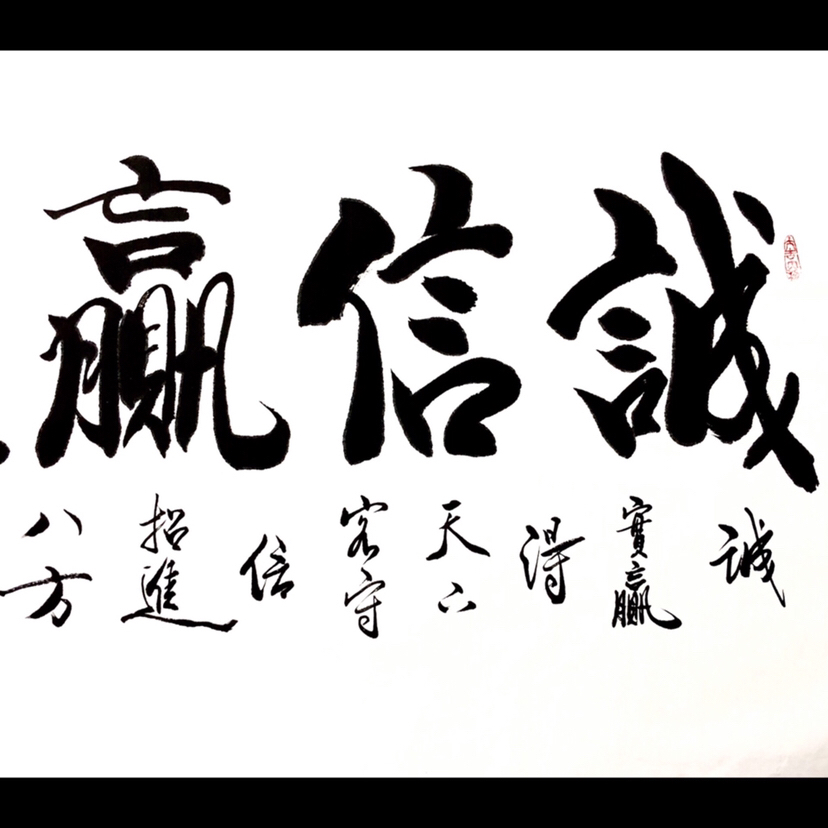 誠信贏
诚實贏得天下客守信招進八方